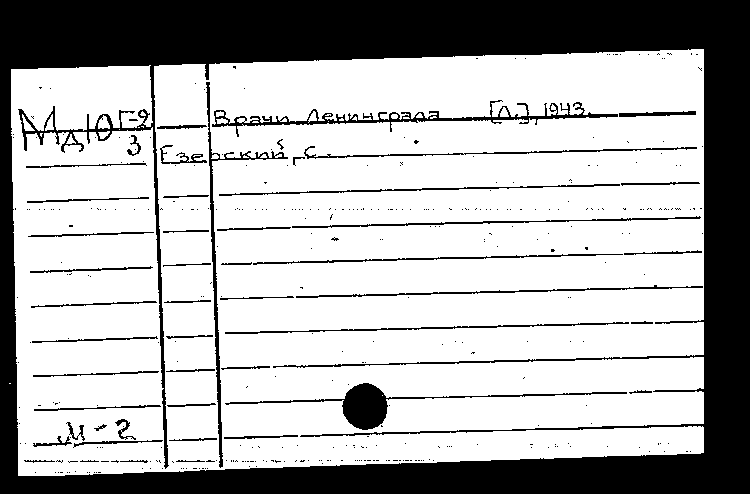 МдЮ Г-9
3
Врачи Ленинграда [Л.], 1943.
Езерский, С.
М-2